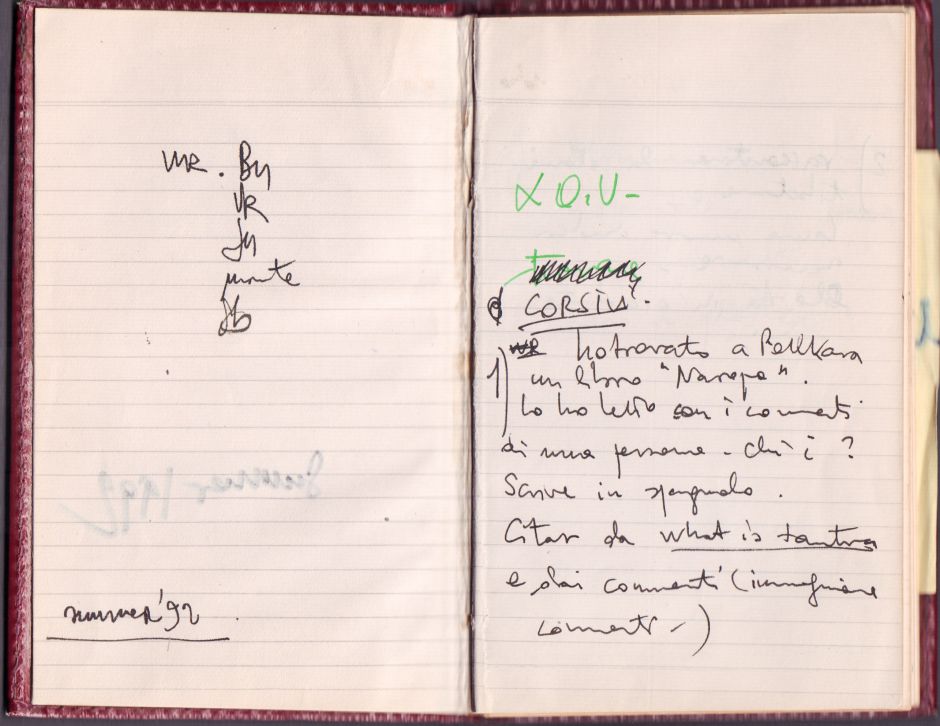 MR. By
VR
Jy
monte
summer '92
X O.V-
CORSIVI.
1) ho trovato a Pokhara
un libro "Naropa".
Lo ho letto con i commenti
di una persona - chi è ?
Scrive in spagnolo .
Citar da what is tantra
e dai commenti (immaginare
commenti -)
Summer 1992